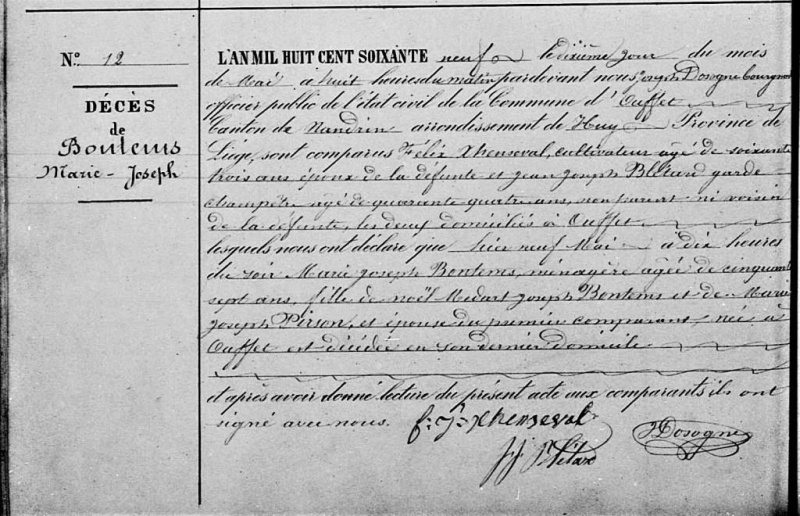 N.° 12
DÉCÈS
de
Bontems
Marie-Joseph
L'AN MIL HUIT CENT SOIXANTE neuf le dixième jour du mois
de Mai à huit heures du matin pardevant nous Joseph Dosogne bourgmestre
officier public de l'état civil de la Commune d'Ouffet
Canton de Nandrin arrondissement de Huy Province de
Liége, sont comparus Félix Xhenseval, cultivateur agé de soixante
trois ans époux de la défunte et jean joseph Blétard garde
champêtre agé de quarante quatre ans, non parent ni voisin
de la défunte, les deux domiciliés à Ouffet
lesquels nous ont déclaré que hier neuf Mai à dix heures
du soir Marie joseph Bontems, ménagère agée de cinquante
sept ans, fille de noël Medart joseph Bontems et de Marie
joseph Pirson, et épouse du premier comparant, née à
Ouffet est décédée en son dernier domicile
et après avoir donné lecture du présent acte aux comparants ils ont
signé avec nous. f: J: xhenseval
Dosogne